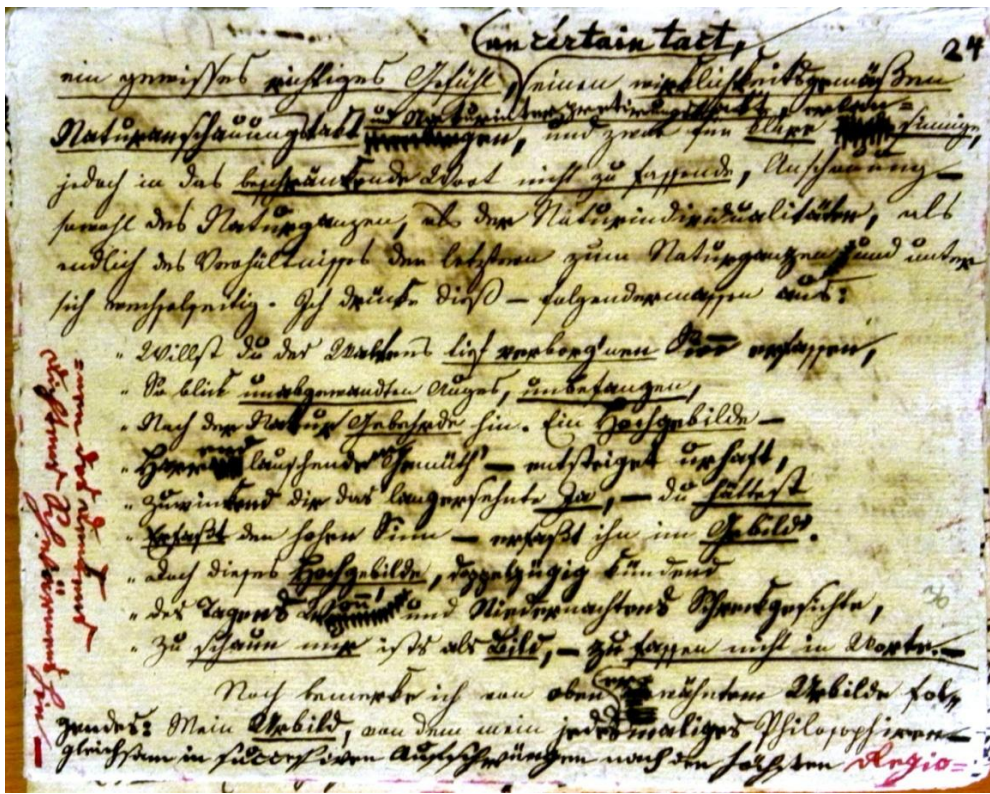 (un certain tact,
24
ein gewisses richtiges Gefühl, einen wirklichkeitsgemäßen
Naturanschauungstakt und Naturinterpretirungstakt, erlan=
gen, und zwar für klare sinnige,
jedoch in das beschränkende Wort nicht zu fassende, Anschauung
sowohl des Naturganzen, als der Naturindividualitäten, als
endlich des Verhältnisses der letztern zum Naturganzen und unter
sich wechselseitig. Ich drücke dieß – folgendermassen aus:
„Willst du des Waltens tief verborg'nen Sinn erfassen,
„So blick unabgewandten Auges, unbefangen,
„Nach der Natur Geberde hin. Ein Hochgebilde –
„lauschende Gemüth – entsteiget urhaft,
„Zuwinkend dir das langersehnte Ja, – du hättest
„Erfaßt den hohen Sinn – erfaßt ihn im Gebild.
„Doch dieses Hochgebilde, doppelzügig kündend
„des Tagens und Niedernachtens Schreckgesichte,
„Zu schaun nur ists als Bild, – zu fassen nicht in Worte. –
Noch bemerke ich von oben erwähntem Urbilde fol=
gendes: Mein Urbild, von dem mein jedesmaliges Philosophiren
gleichsam in successiven Aufschwüngen nach den höchsten Regio=
36